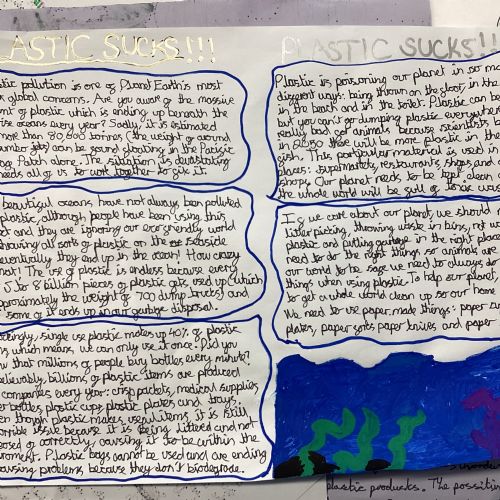 LASTIC SUCKS!!!
stic pollution is one of Planet Earth's most
global concerns. Are you aware of the massive
nt of plastic which is ending up beneath the
oceans every year? Sadly, it is estimated
more than 80,000 tonnes (the weight of around
jets) can be found floating in the Pacific
Patch alone. The situation is devastating
needs all of us to work together to fix it.
beautiful oceans have not always been polluted
plastic, although people have been using this
ct and they are ignoring our eco friendly world
having all sorts of plastic on the seaside
eventually they end up in the ocean! How crazy
hat! The use of plastic is endless because every
5 to 8 billion pieces of plastic gets used up (which
approximately the weight of 700 dump trucks) and
some of it ends up in our garbage disposal.
singly, single use plastic makes up 40% of plastic
which means, we can only use it once. Did you
ow that millions of people buy bottles every minute?
believably, billions of plastic items are produced
companies every year: crisp packets, medical supplies
er bottles, plastic cups, plastic plates and trays.
en though plastic makes useful items, it is still
orrible issue because it is being littered and not
osed of correctly, causing it to be within the
ironment. Plastic bags cannot be used and are ending
causing problems because they don't biodegrade.
PLASTIC SUCKS!!
Plastic is poisoning our planet in so ma
different ways: being thrown on the floor, in the
in the beach and in the toilet. Plastic can be
but you can't go dumping plastic everywhere
really bad for animals because scientists b
in 2050 there will be more plastic in the
fish. This particular material is used in
places: supermarkets, restaurants, shops and
shops. Our planet needs to be kept clean
the whole world will be full of toxic wa
If we care about our planet, we should
litter picking, throwing waste in bins, not w
plastic and putting garbage in the right place
need to do the right things so animals are
our world to be safe we need to always do
things when using plastic. To help our planet,
to get a whole world clean up so our home
We need to use paper made things: paper
plates, paper forks, paper knives and paper
plastic products. The